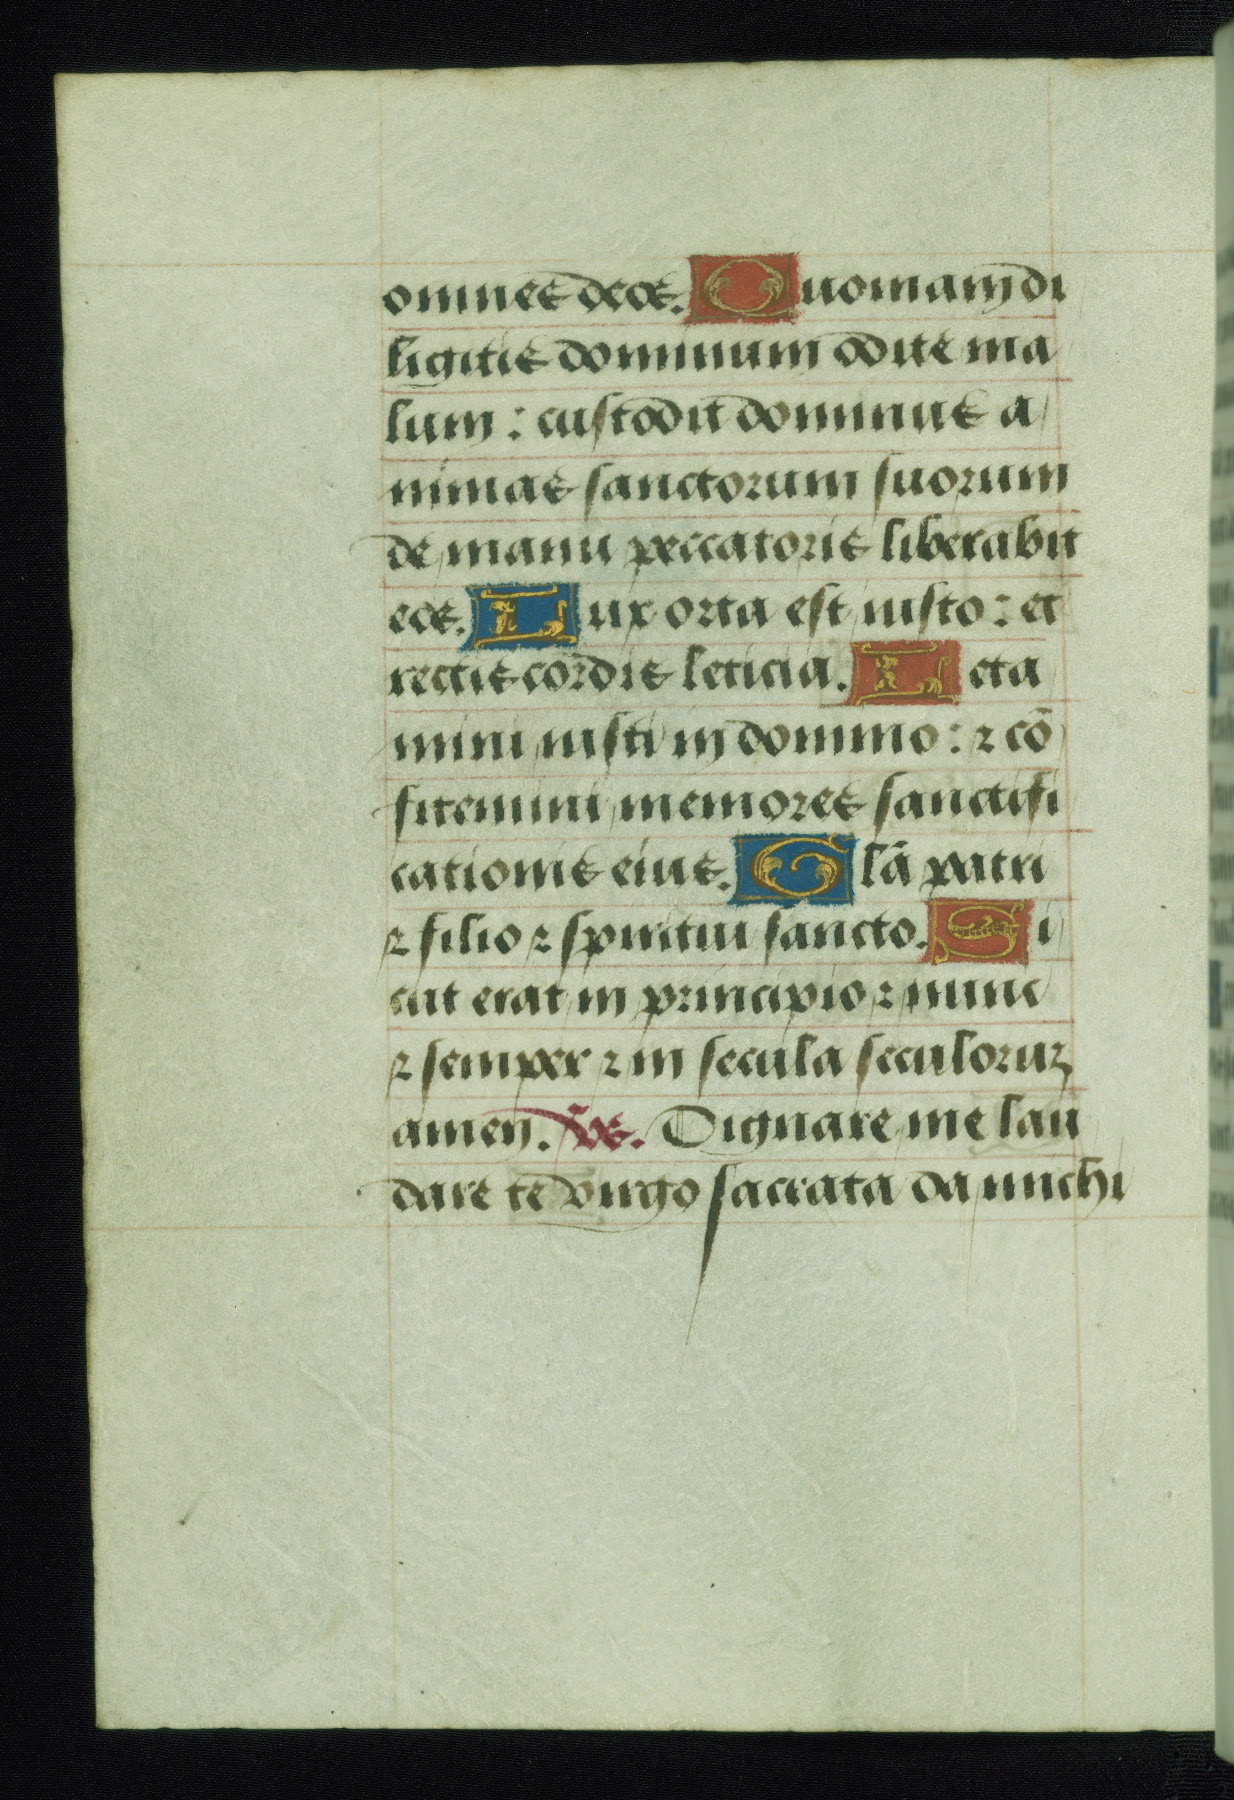 omnes deos. Quoniam di
ligitis dominum odite ma
lum: custodit dominus a
nimas sanctorum suorum
de manu peccatoris liberabit
eos. Lux orta est iusto: et
rectis cordis leticia. Leta
mini iusti in domino: ⁊ cō
fitemini memores sanctifi
cationis eius. Glā patri
⁊ filio ⁊ spiritui sancto. Si
cut erat in principio ⁊ nunc
⁊ semper ⁊ in secula seculoruꝫ
amen. Dignare me lau
dare te virgo sacrata da michi